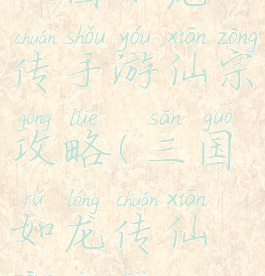 chuán shǒu yóu xiān zōng
传手游仙宗
gōng lüè sān guó
攻略(三国
rú lóng chuán xiān
如龙传仙